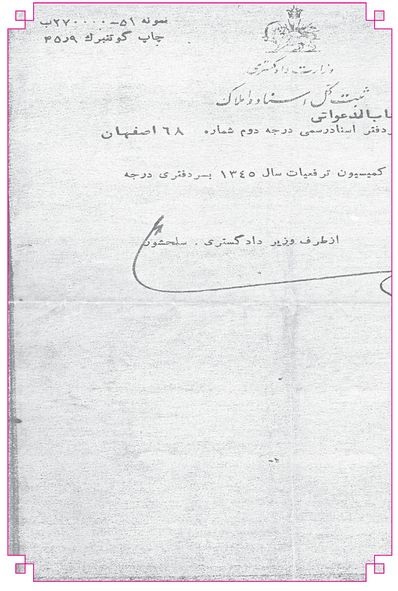 نمونه ۵۱-۲۷۰۰۰۰ب
چاپ گوتنبرك ۴۵٫۹
وزارت دادگستری
ثبت کل اسناد و املاک
دعواتی
دفتر اسنادرسمی درجه دوم شماره ۶۸ اصفهان
کمیسیون ترفیعات سال ۱۳۴۵ بسردفتری درجه
ازطرف وزیر دادگستری . سلحشور